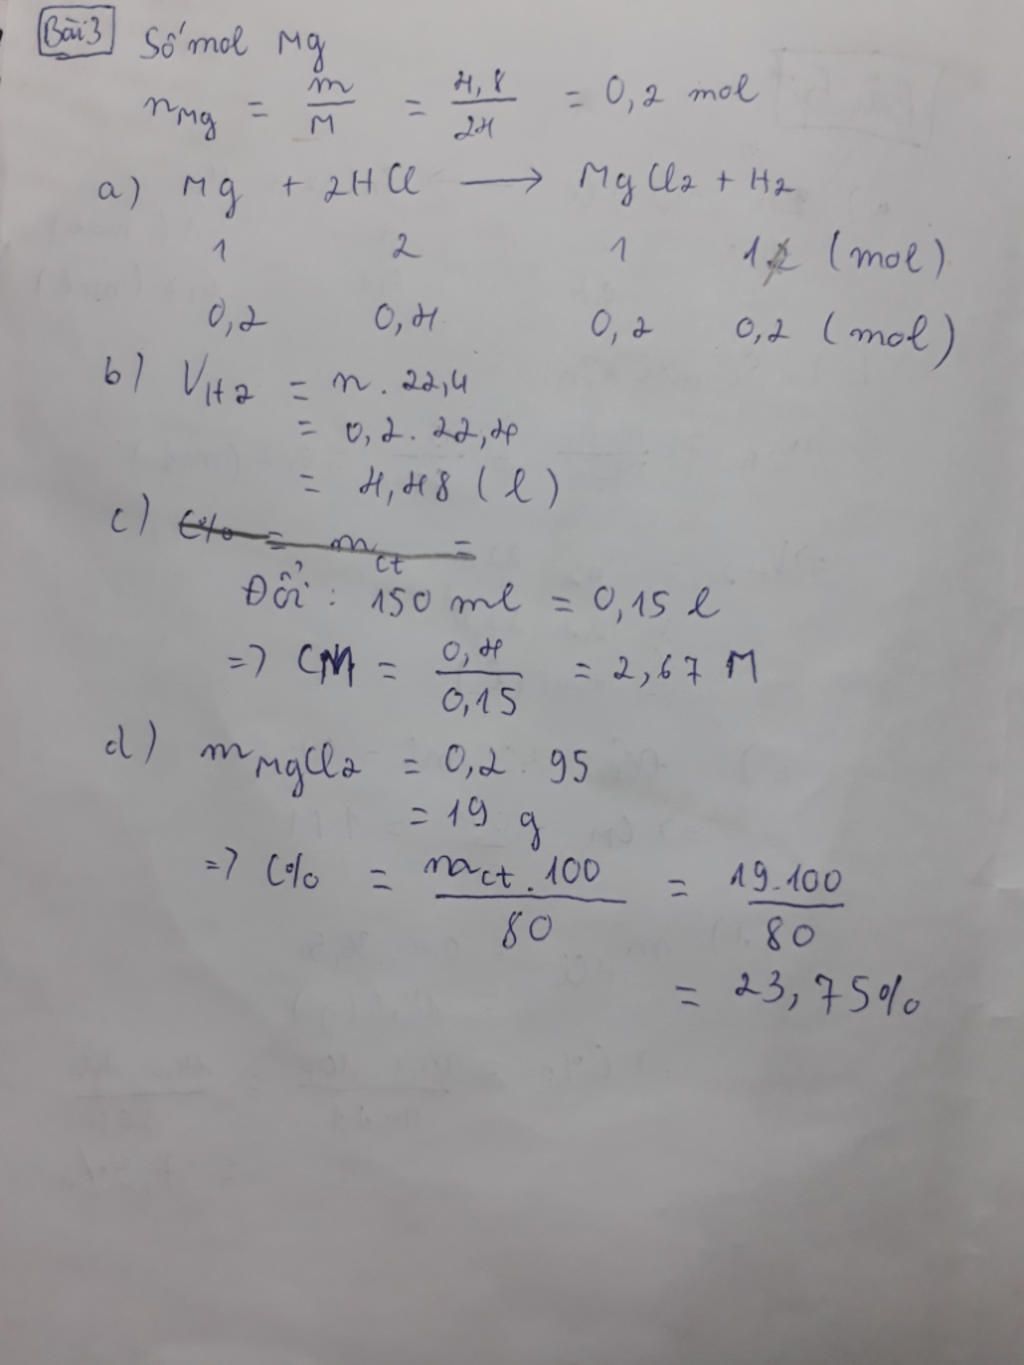 Bài 3 Số mol Mg
nMg = m/M = 4,8/24 = 0,2 mol
a) Mg + 2HCl ⟶ MgCl2 + H2
1 2 1 1 (mol)
0,2 0,4 0,2 0,2 (mol)
b) VH2 = n . 22,4
= 0,2 . 22,4
= 4,48 (l)
c) C% = mct =
Đổi : 150 ml = 0,15 l
=> CM = 0,4/0,15 = 2,67 M
d) mMgCl2 = 0,2 . 95
= 19 g
=> C% = mct . 100/80 = 19.100/80
= 23,75%